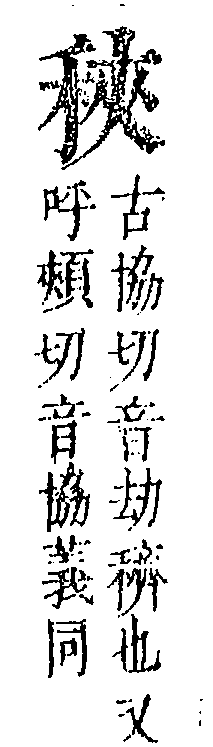 古協切音劫穧也又
呼頰切音協義同